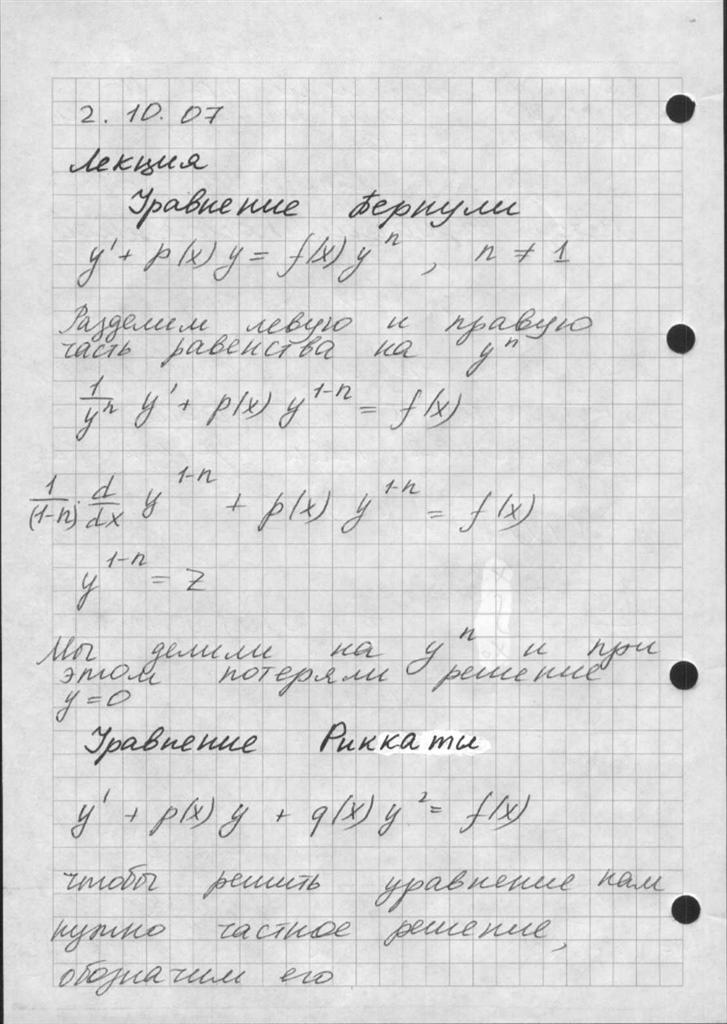 2. 10. 07
Лекция
Уравнение Бернули
y' + p(x) y = f(x) y^n , n ≠ 1
Разделим левую и правую
часть равенства на y^n
1/y^n y' + p(x) y^{1-n} = f(x)
1/(1-n) · d/dx y^{1-n} + p(x) y^{1-n} = f(x)
y^{1-n} = z
Мы делили на y^n и при
этом потеряли решение
y = 0
Уравнение Риккаты
y' + p(x) y + q(x) y^2 = f(x)
чтобы решить уравнение нам
нужно частное решение,
обозначим его